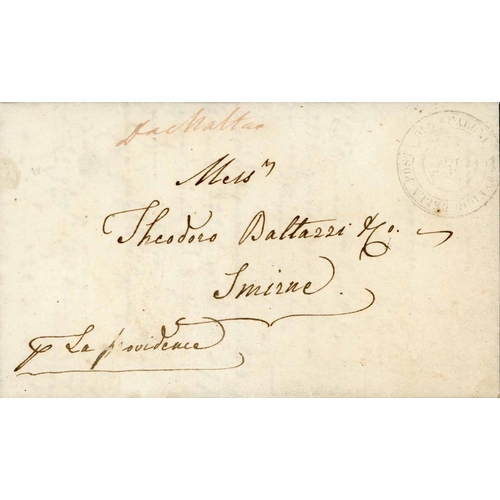 Da Malta
Mess.rs
Theodoro Baltazzi & Co.
Smirne.
p La providence